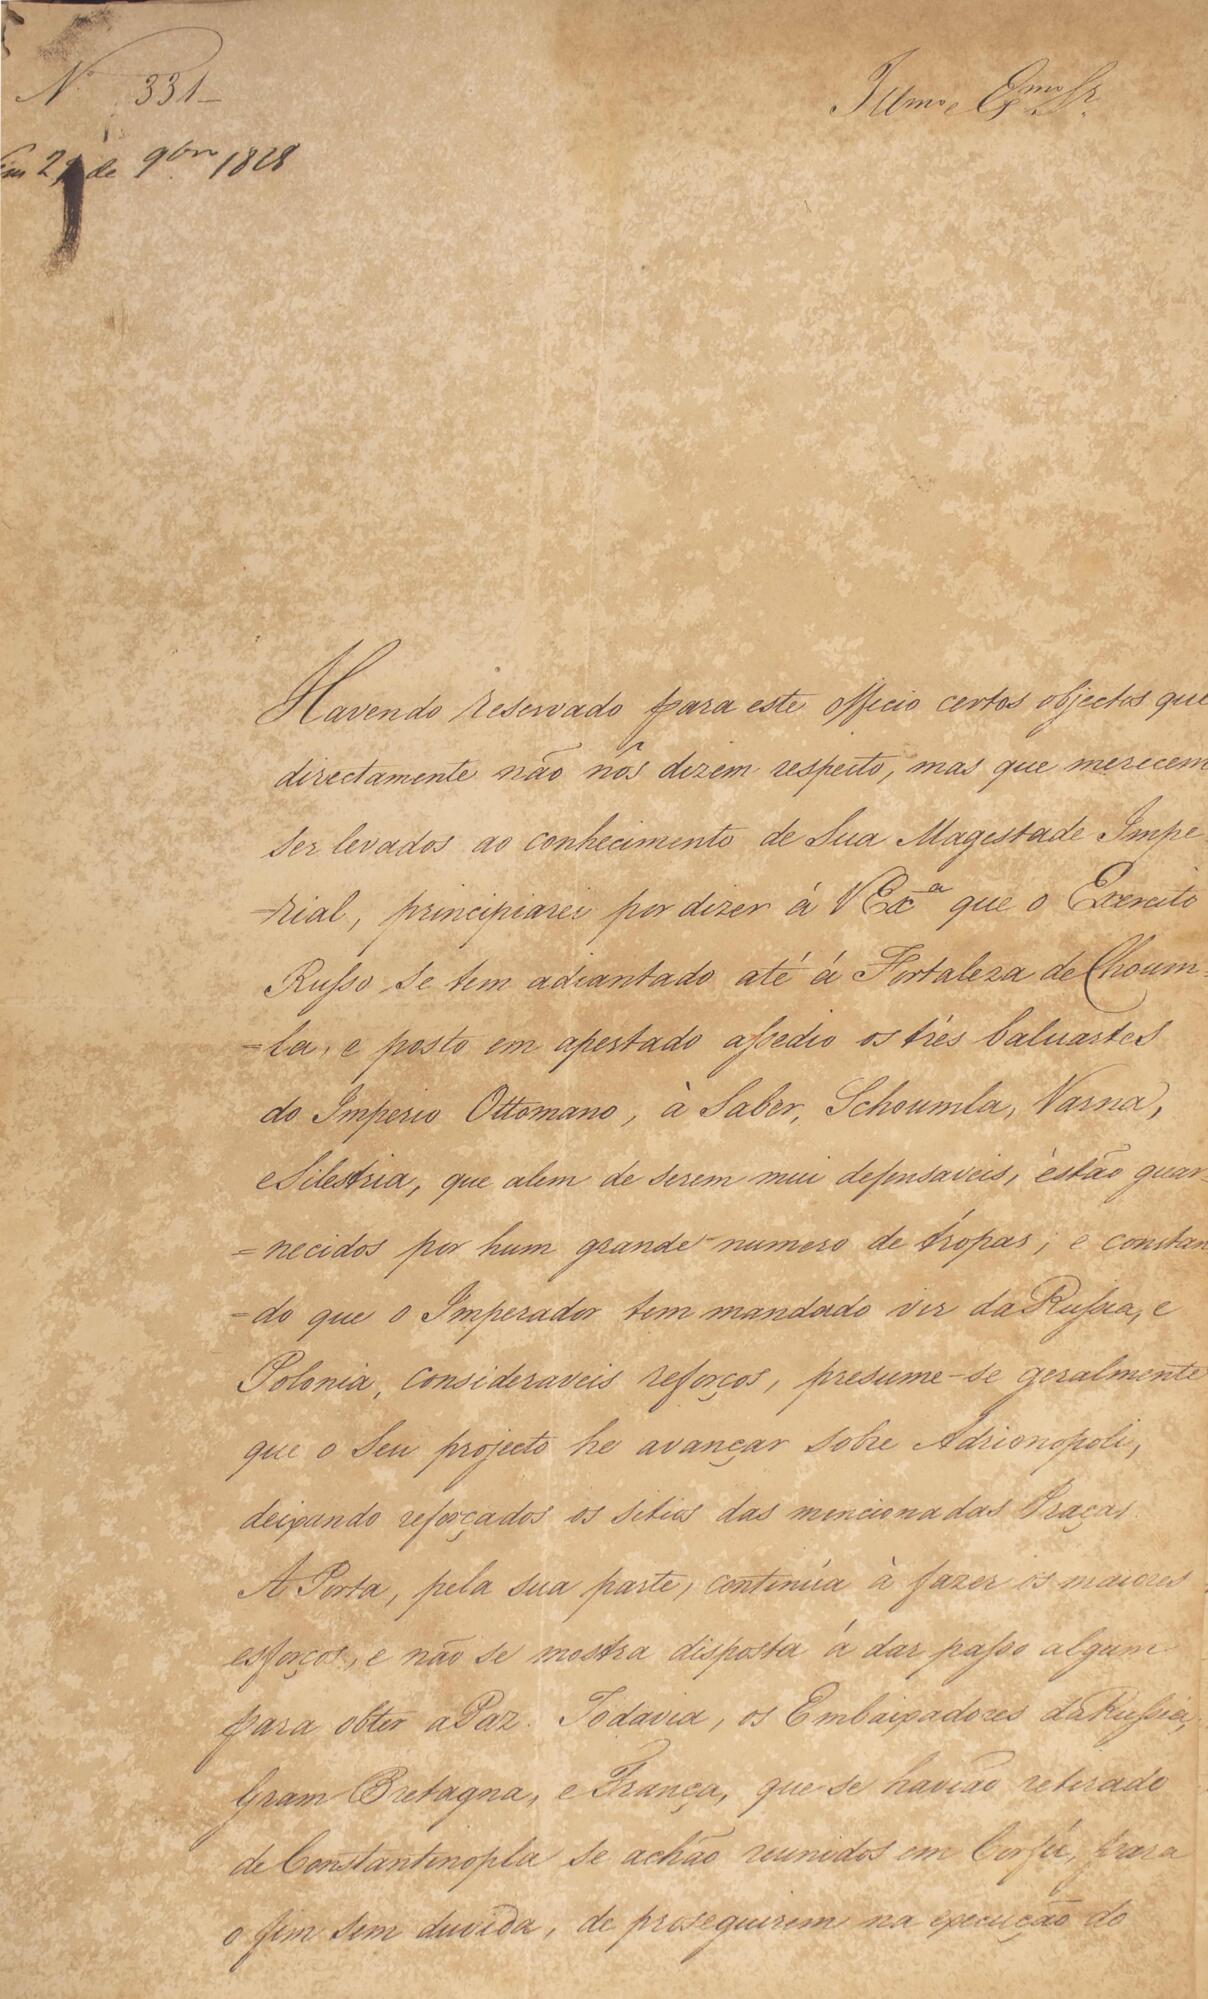 N.º 331
Illmo e Exmo Sr.
Em 2 de 9bro 1828
Havendo reservado para este officio certos objectos que
directamente não nós dizem respeito, mas que merecem
ser levados ao conhecimento de Sua Magestade Impe
=rial, principiarei por dizer á VExcª que o Exercito
Russo se tem adiantado até á Fortaleza de Choum=
=la, e posto em apertado assedio os três baluartes
do Imperio Ottomano, à Saber, Schoumla, Varna,
e Silestria, que alem de serem mui defensaveis, èstão guar=
=necidos por hum grande numero de trópas; e constan
=do que o Imperador tem mandado vir da Russia, e
Polonia, consideraveis reforços, presume-se geralmente
que o Seu projecto he avançar sobre Adrionopoli,
deixando reforçados os sitios das mencionadas Praças.
A Porta, pela sua parte, continúa à fazer os maiores
esforços, e não se mostra disposta á dar passo algum
para obter a Paz. Todavia, os Embaixadores da Russia,
Gram Bretagna, e França, que se havião retirado
de Constantinopla se achão reunidos em Corfú, para
o fim sem duvida, de proseguirem na execução do